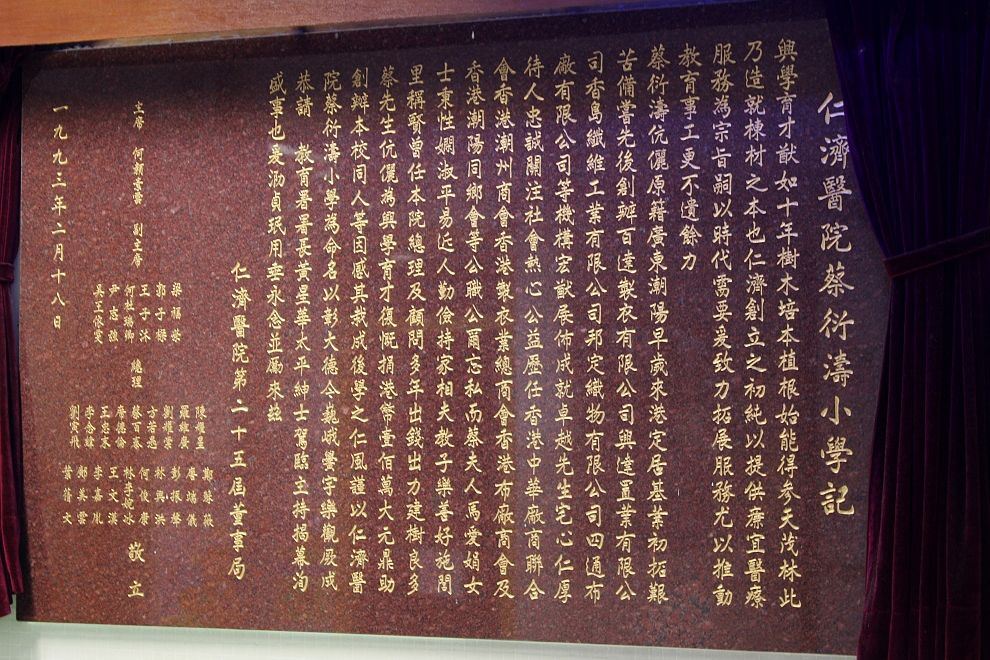 仁濟醫院蔡衍濤小學記
興學育才猷如十年樹木培本植根始能得參天茂林此
乃造就棟材之本也仁濟創立之初純以提供廉宜醫療
服務為宗旨嗣以時代需要爰致力拓展服務尤以推動
教育事工更不遺餘力
蔡衍濤伉儷原籍廣東潮陽早歲來港定居基業初拓艱
苦備嘗先後創辦百達製衣有限公司興達置業有限公
司香島纖維工業有限公司邦定織物有限公司四通布
廠有限公司等機構宏猷展佈成就卓越先生宅心仁厚
待人忠誠關注社會熱心公益歷任香港中華廠商聯合
會香港潮州商會香港製衣業總商會香港布廠商會及
香港潮陽同鄉會等公職公爾忘私而蔡夫人馬愛娟女
士秉性嫻淑平易近人勤儉持家相夫教子樂善好施閭
里稱賢曾任本院總理及顧問多年出錢出力建樹良多
蔡先生伉儷為興學育才復慨捐港幣壹佰萬大元鼎助
創辦本校同人等因感其栽成後學之仁風謹以仁濟醫
院蔡衍濤小學為命名以彰大德今巍峨黌宇樂觀厥成
恭請 教育署署長黃星華太平紳士駕臨主持揭幕洵
盛事也爰泐貞珉用垂永念並勵來茲
仁濟醫院第二十五屆董事局
主席 何賴雪雲 副主席
梁福榮
郭子樑
王子沐
何杜瑞卿
尹志強
總理
陳耀星
羅維廣
劉耀棠
方若愚
蔡百泰
詹德倫
王忠本
李念緯
劉寅飛
詹瑞儀
彭振聲
林興洪
何俊康
王文漢
李嘉胤
鄭美雲
葉蔭大
敬立
一九九三年二月十八日